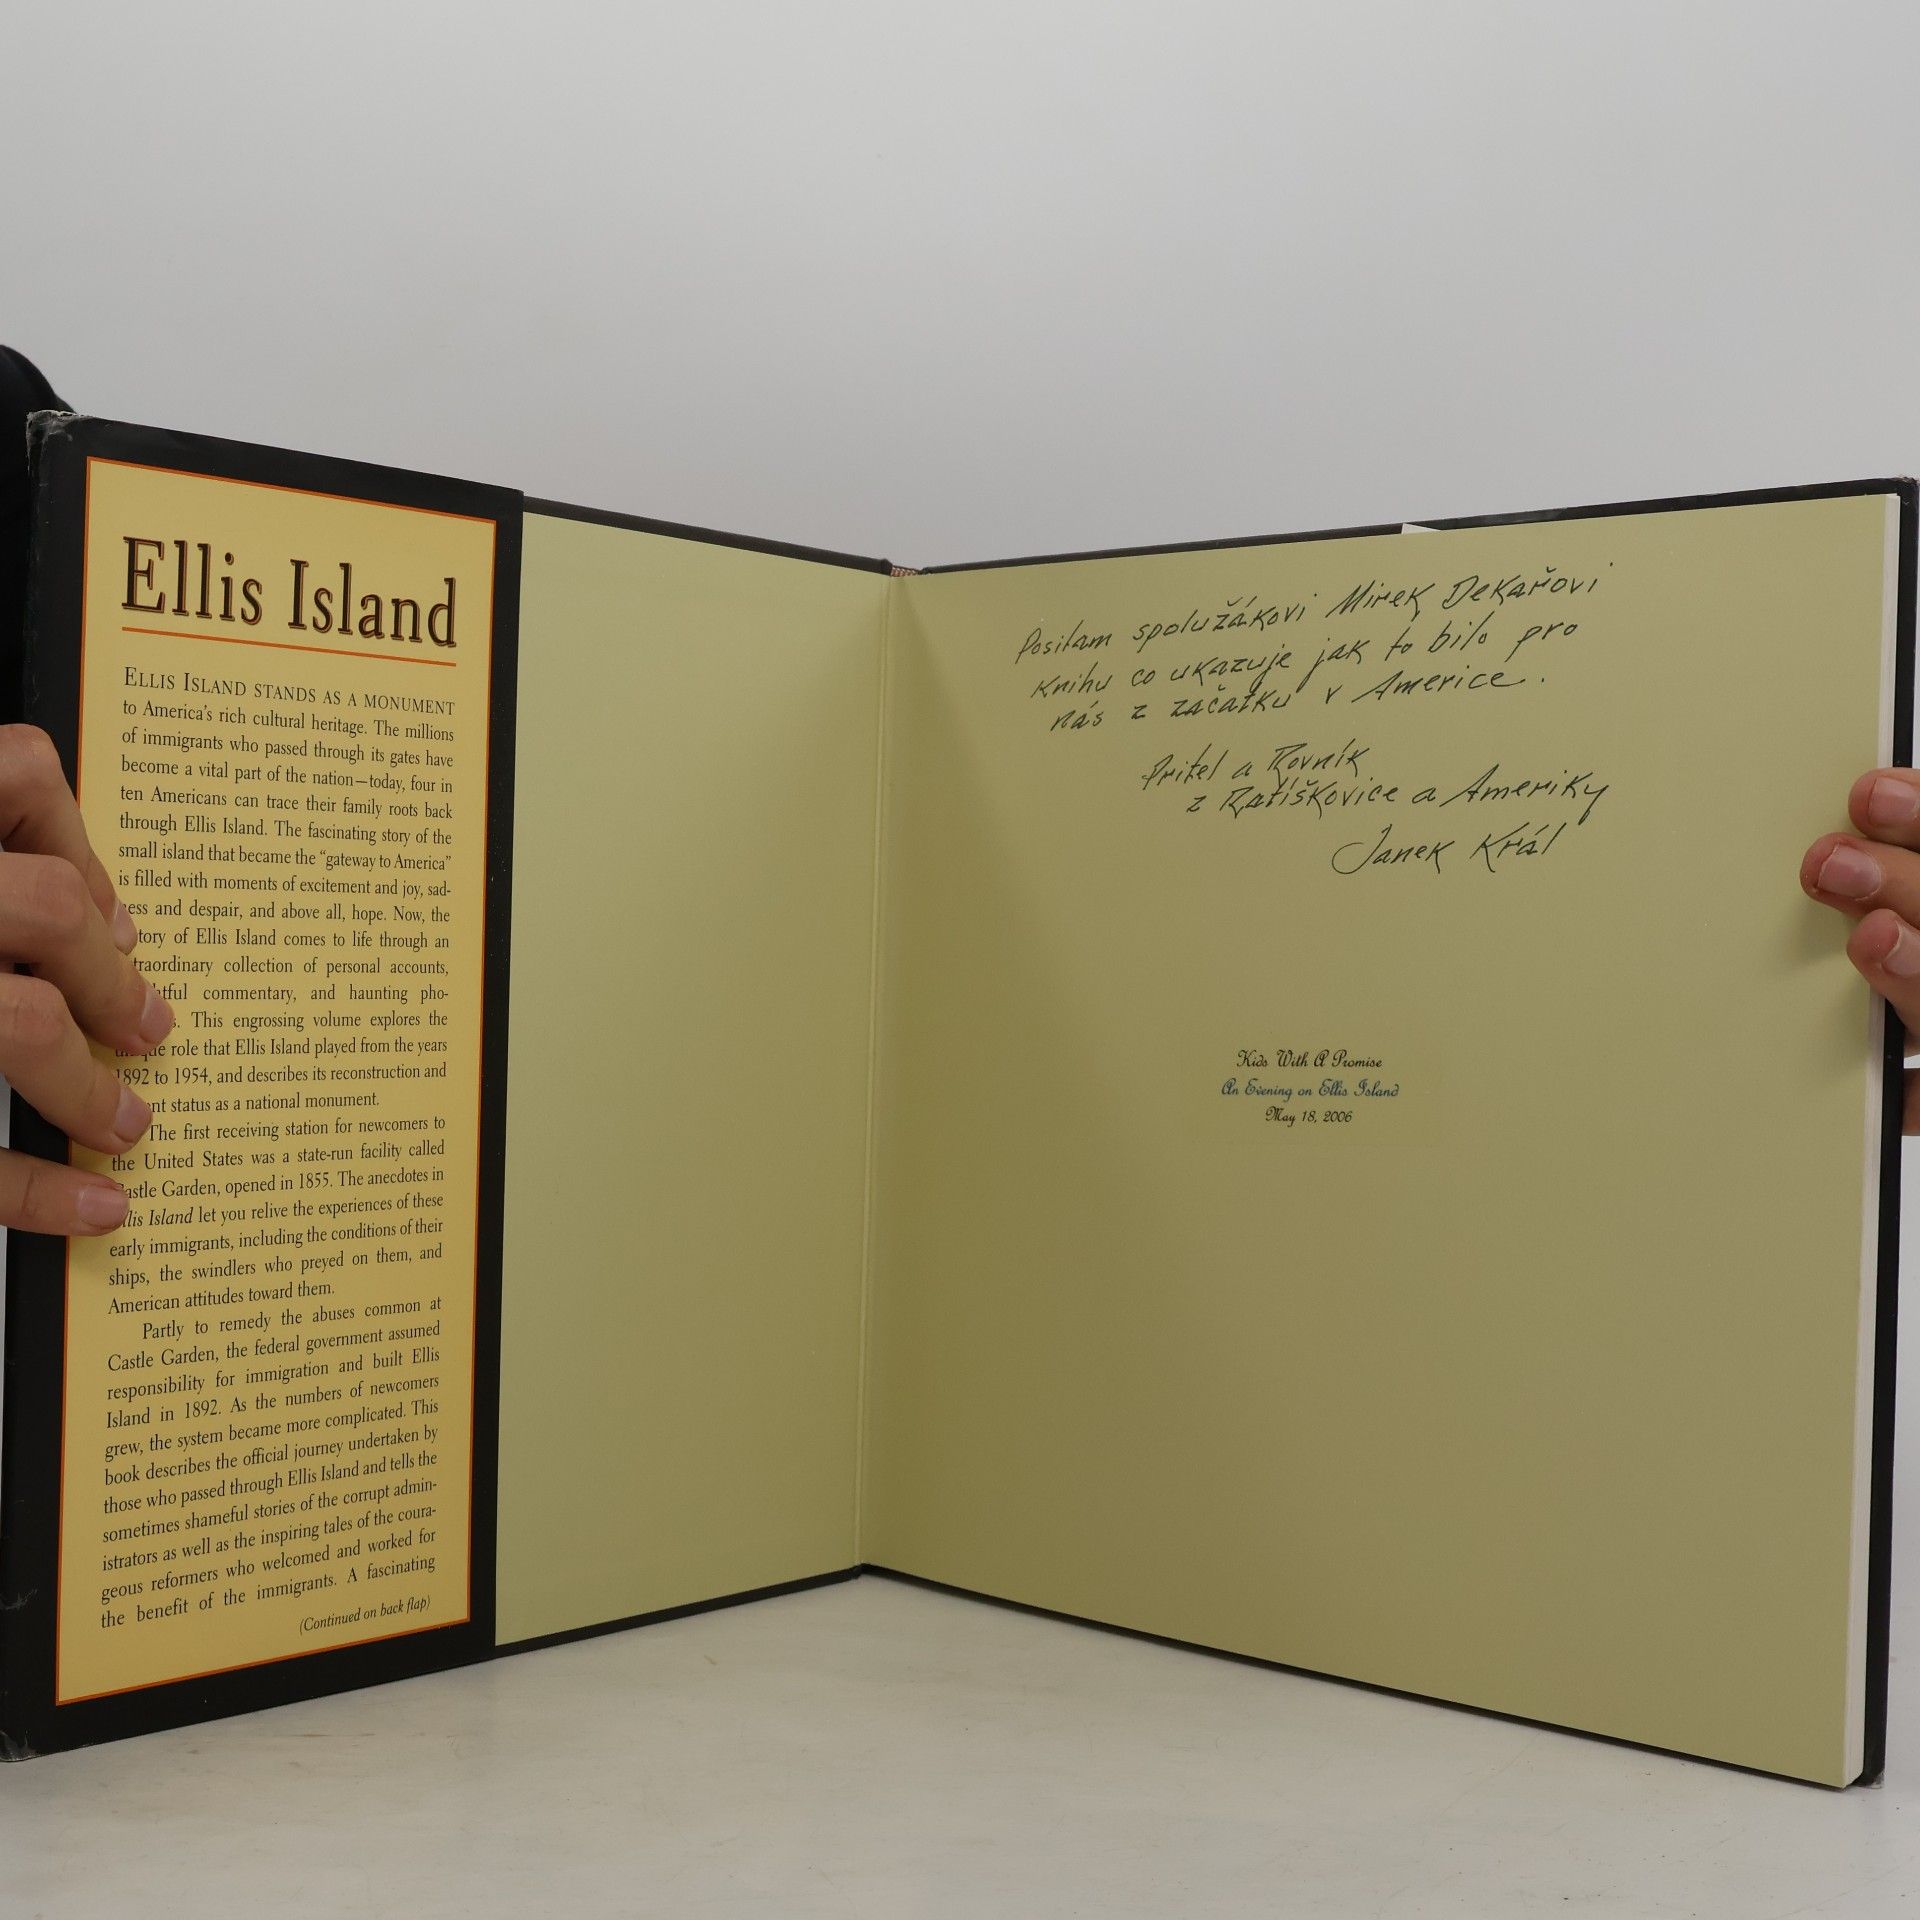 Ellis Island
ELLIS ISLAND STANDS AS A MONUMENT
to America's rich cultural heritage. The millions
of immigrants who passed through its gates have
become a vital part of the nation—today, four in
ten Americans can trace their family roots back
through Ellis Island. The fascinating story of the
small island that became the "gateway to America"
is filled with moments of excitement and joy, sad-
ness and despair, and above all, hope. Now, the
tory of Ellis Island comes to life through an
traordinary collection of personal accounts,
htful commentary, and haunting pho-
s. This engrossing volume explores the
role that Ellis Island played from the years
1892 to 1954, and describes its reconstruction and
nt status as a national monument.
The first receiving station for newcomers to
the United States was a state-run facility called
Castle Garden, opened in 1855. The anecdotes in
llis Island let you relive the experiences of these
early immigrants, including the conditions of their
ships, the swindlers who preyed on them, and
American attitudes toward them.
Partly to remedy the abuses common at
Castle Garden, the federal government assumed
responsibility for immigration and built Ellis
Island in 1892. As the numbers of newcomers
grew, the system became more complicated. This
book describes the official journey undertaken by
those who passed through Ellis Island and tells the
sometimes shameful stories of the corrupt admin-
istrators as well as the inspiring tales of the coura-
geous reformers who welcomed and worked for
the benefit of the immigrants. A fascinating
(Continued on back flap)
Posilam spolužákovi Mirek Dekařovi
Knihu co ukazuje jak to bilo pro
nás z začatku v Americe.
Pritel a Rovník
z Ratíškovice a Ameriky
Janek Král
Kids With A Promise
An Evening on Ellis Island
May 18, 2006